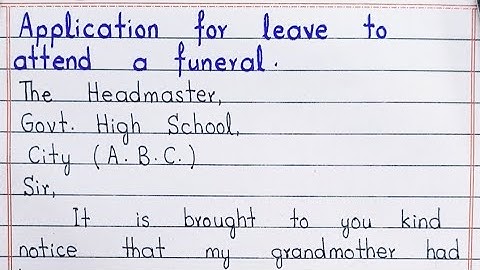 Application for leave to
attend a funeral.
The Headmaster,
Govt. High School,
City (A.B.C.)
Sir,
It is brought to you kind
notice that my grandmother had